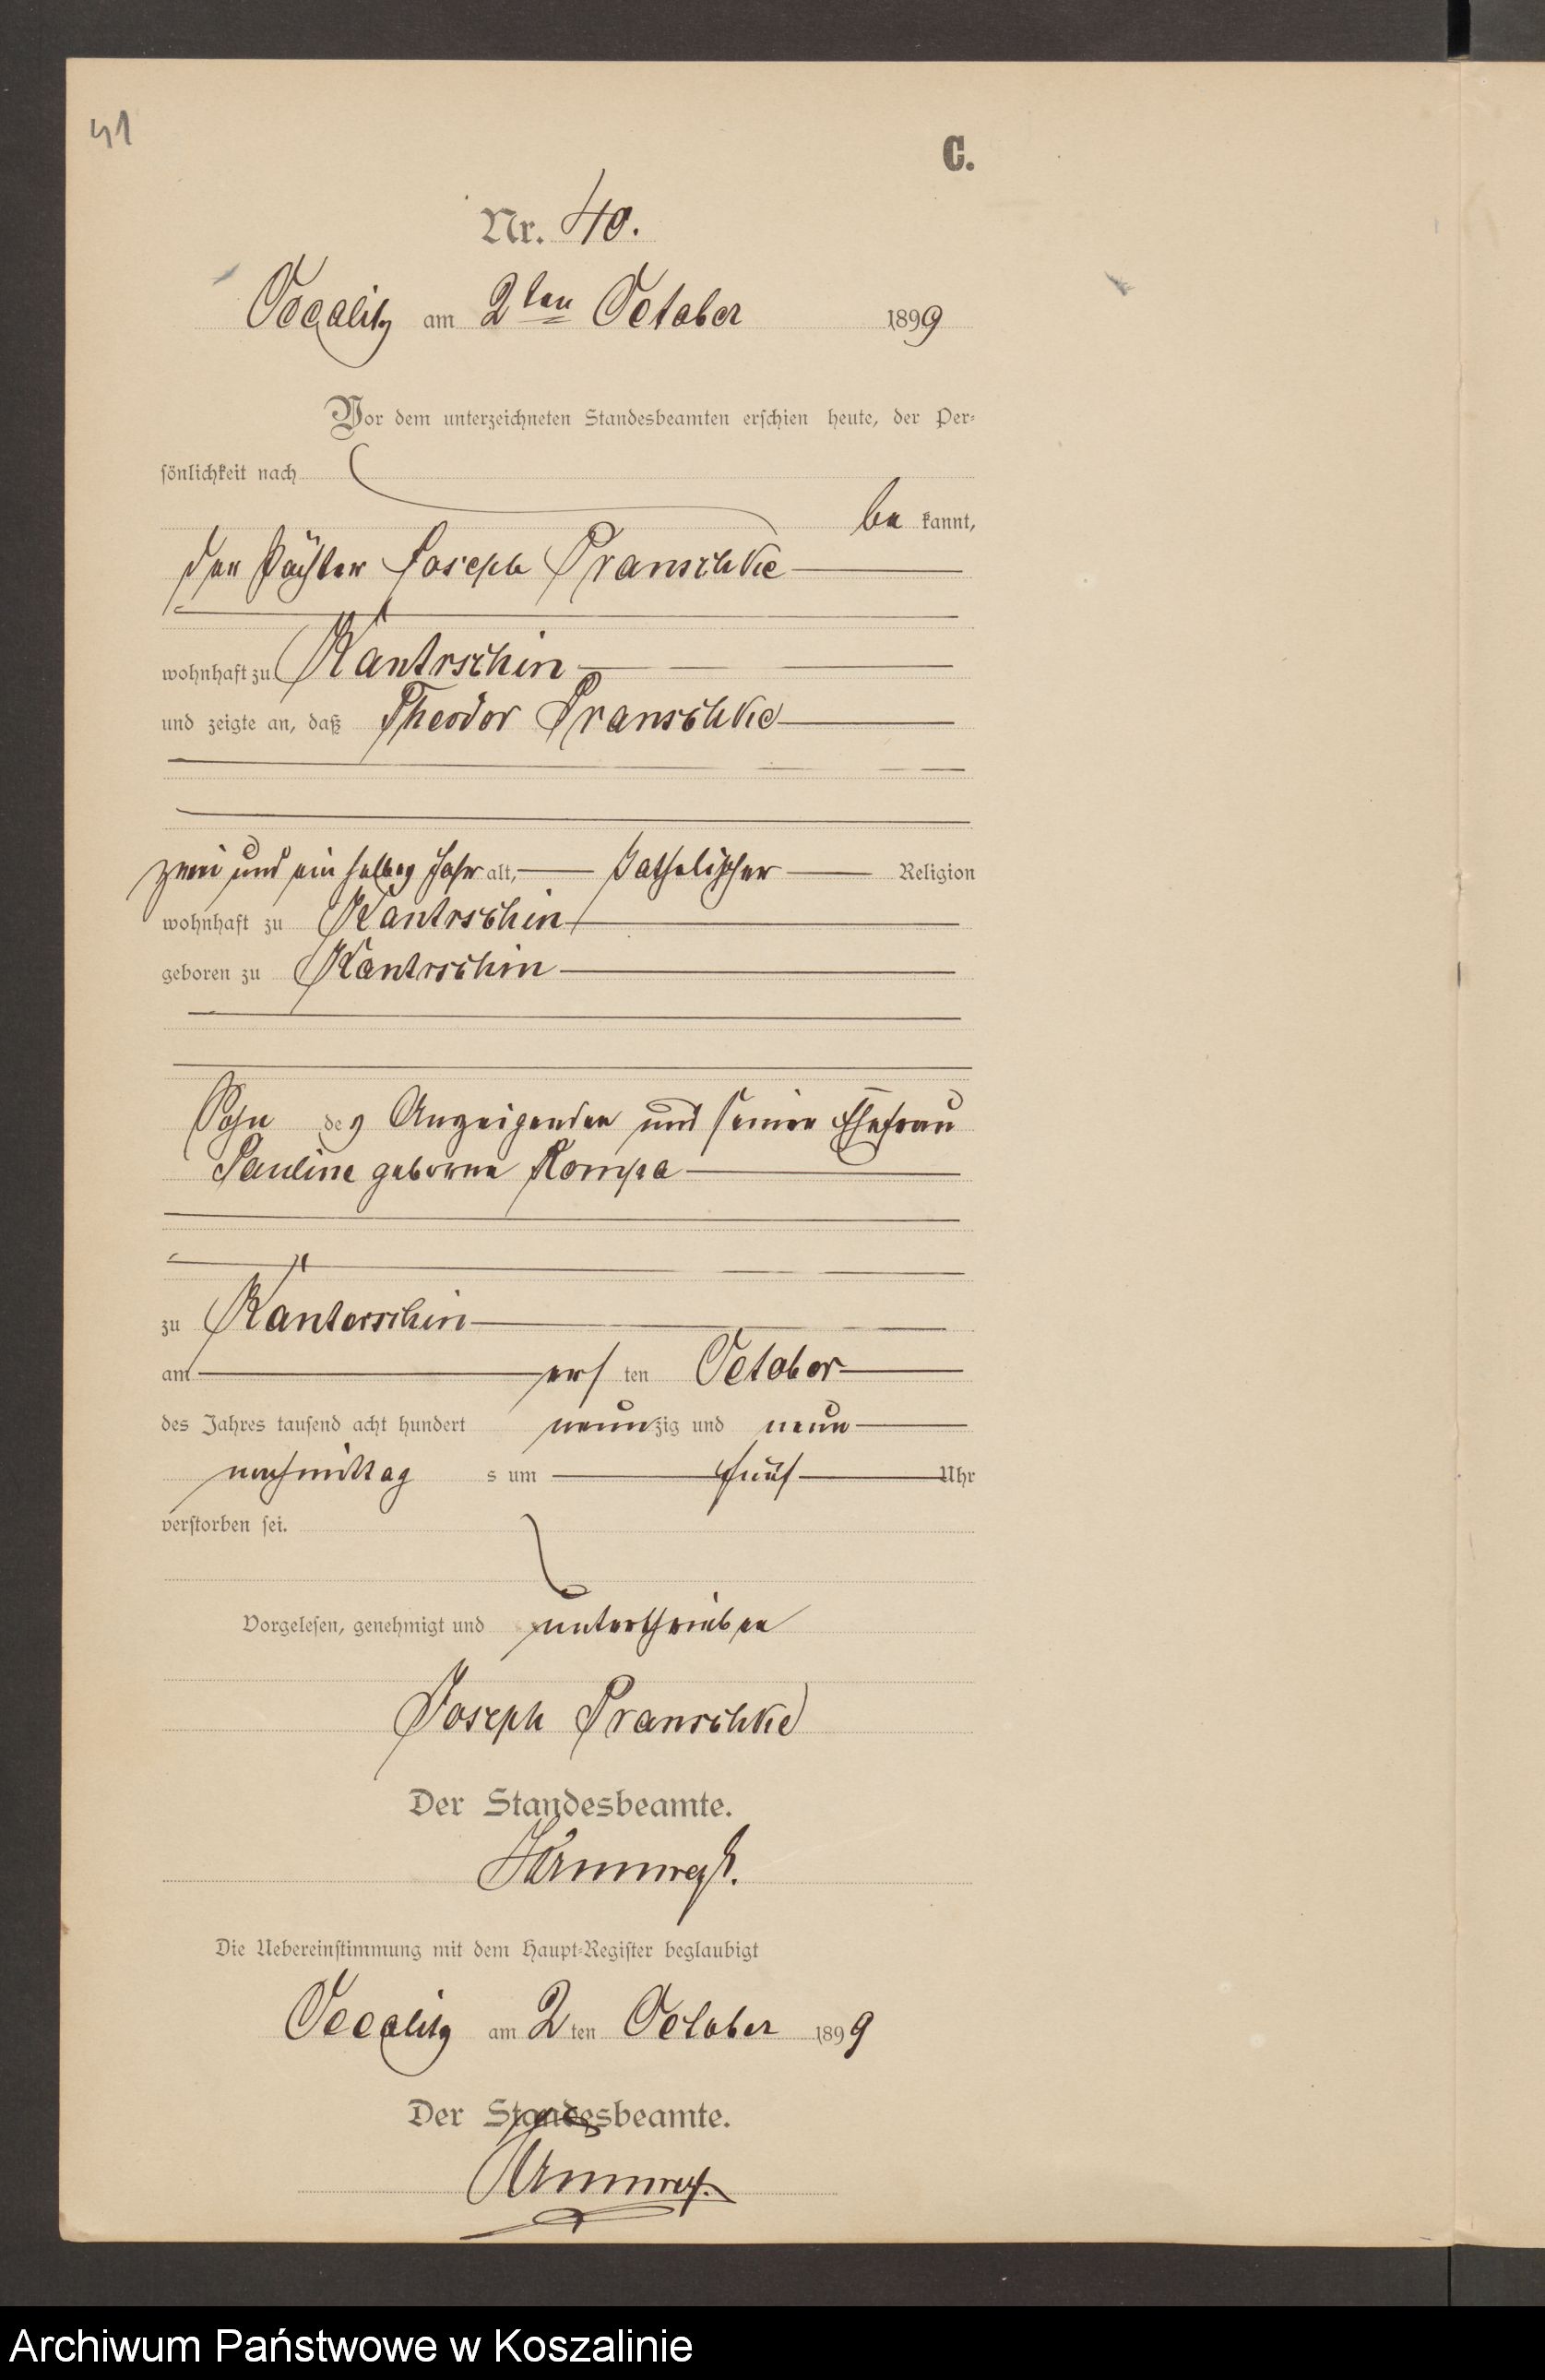 41
C.
Nr. 40.
Occalitz am 2ten October 1899
Vor dem unterzeichneten Standesbeamten erschien heute, der Per-
sönlichkeit nach
be kannt,
der Pächter Joseph Pranschke
wohnhaft zu Kantrschin
und zeigte an, daß Theodor Pranschke
zwei und ein halbes Jahr alt, katholischer Religion
wohnhaft zu Kantrschin
geboren zu Kantrschin
Sohn des Anzeigenden und seiner Ehefrau
Pauline geborne Kompa
zu Kanterschin
am ersten October
des Jahres tausend acht hundert neunzig und neun
nachmittags um fünf Uhr
verstorben sei.
Vorgelesen, genehmigt und unterschrieben
Joseph Pranschke
Der Standesbeamte.
Die Uebereinstimmung mit dem Haupt-Register beglaubigt
Occalitz am 2ten October 1899
Der Standesbeamte.
Archiwum Państwowe w Koszalinie